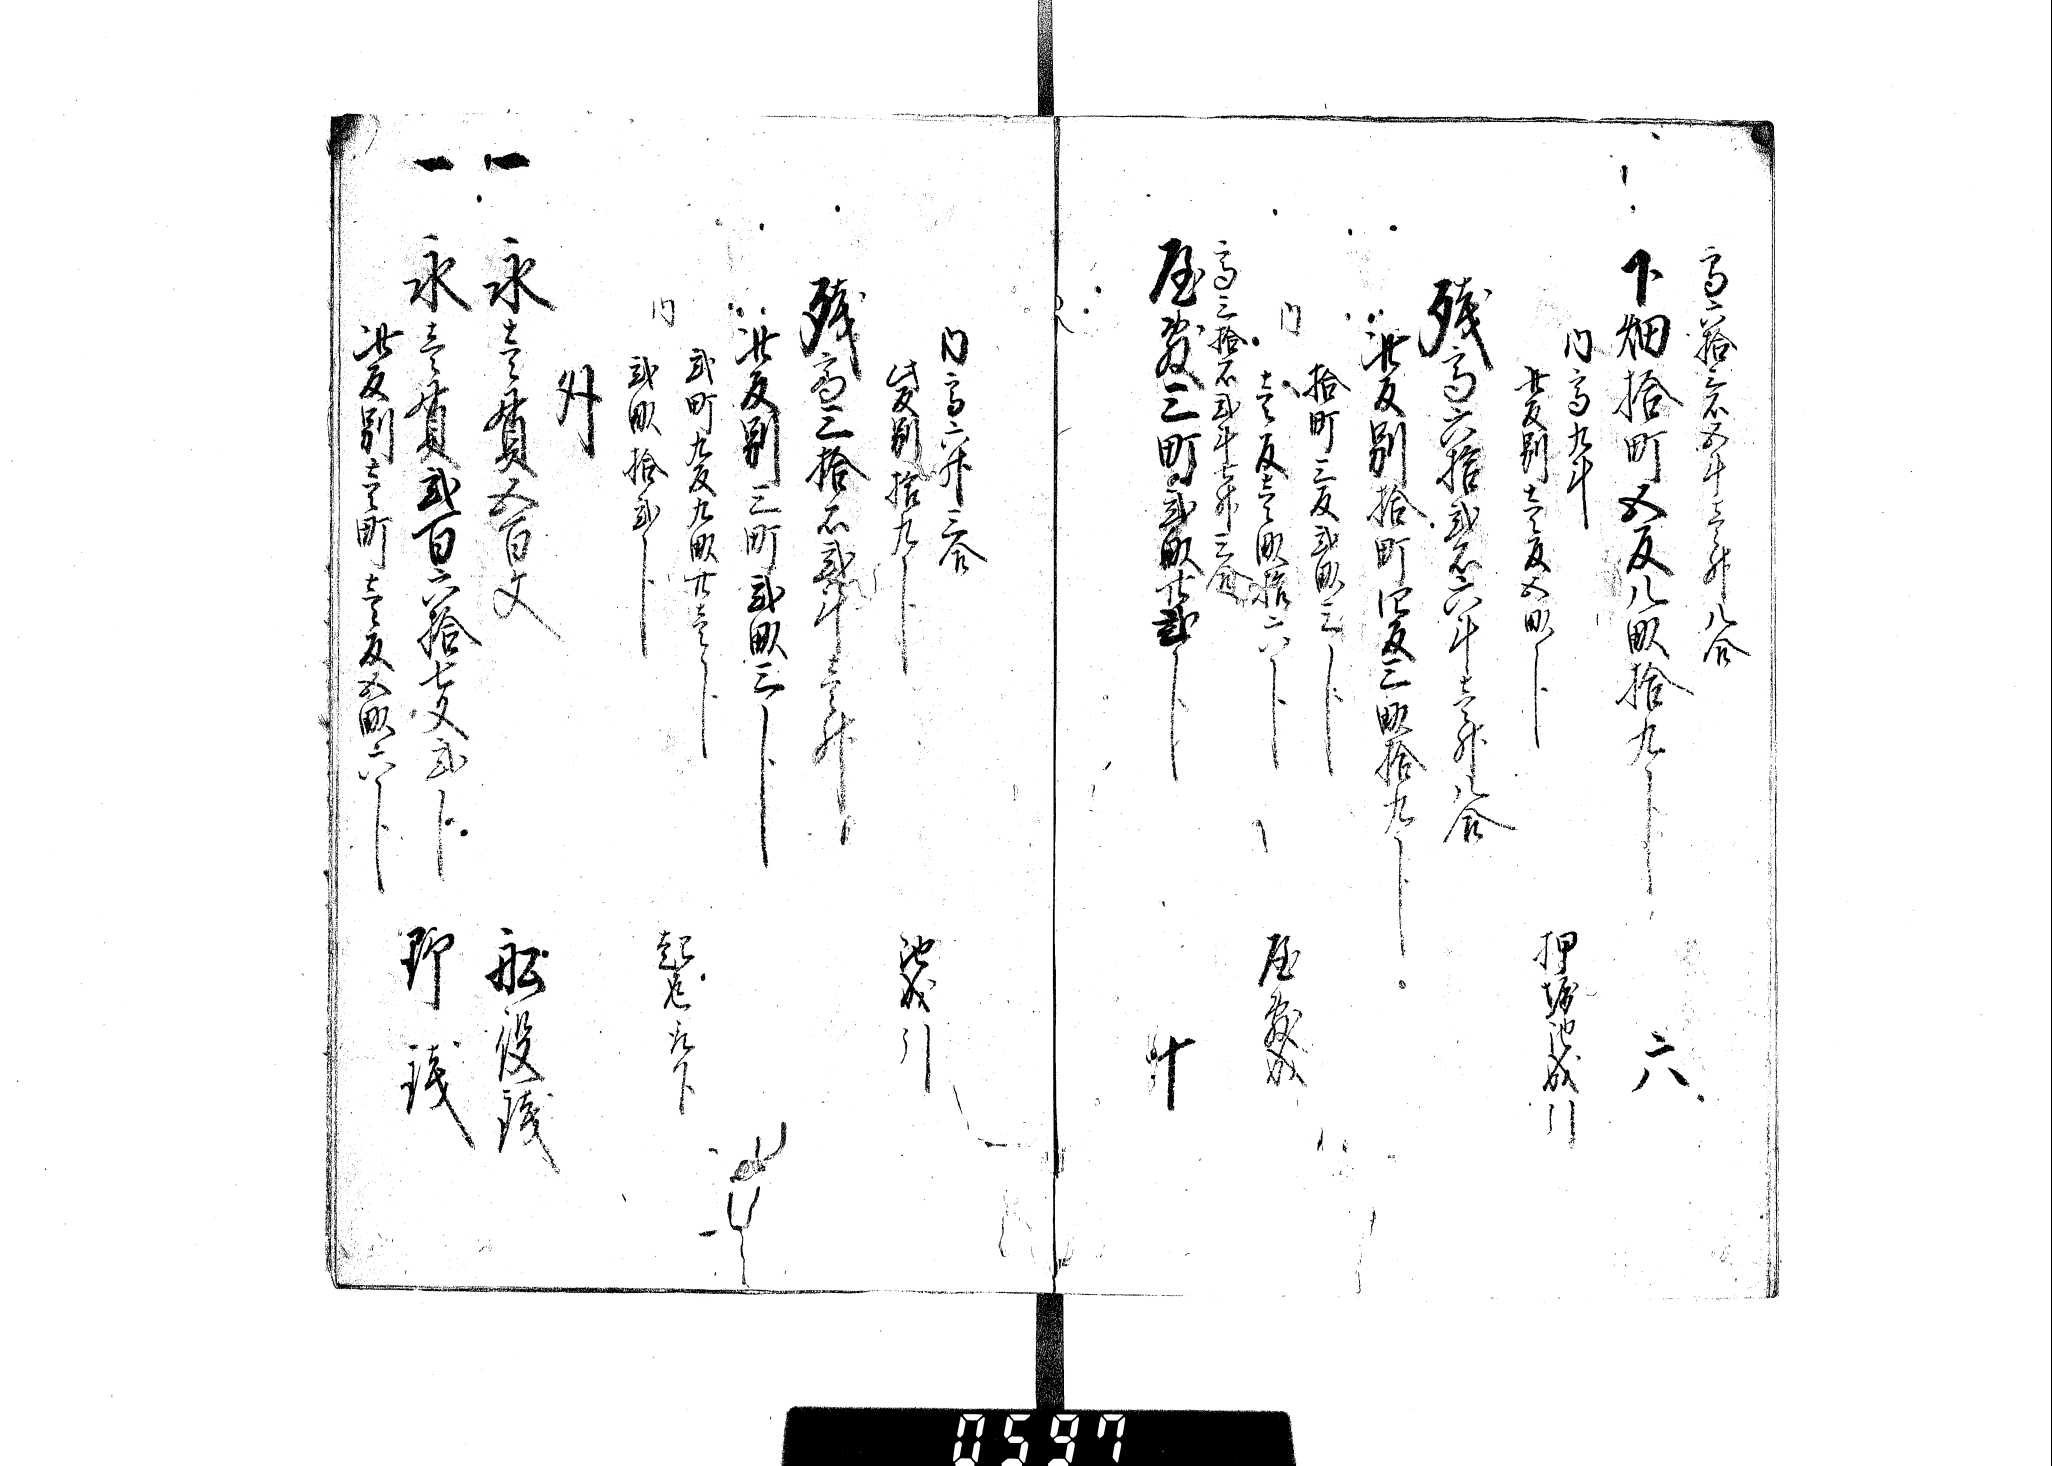 高六拾三石五斗壱升八合
下畑拾町五反八畝拾九歩 六
内高九斗
此反別壱反五畝歩 押堀池成引
残高六拾弐石六斗壱升八合
此反別拾町四反三畝拾九歩
拾町三反弐畝三歩
内
壱反壱畝拾六歩 屋敷成
高三拾石弐斗七升三合
屋敷三町弐畝廿弐歩 十
内高六升三合
此反別拾九歩 池成引
残高三拾石弐斗壱升
此反別三町弐畝三歩
弐町九反九畝廿壱歩
内
弐畝拾弐歩 起返下
外
一 永壱貫五百文 船役銭
一 永壱貫弐百六拾七文弐分 野銭
此反別壱町壱反五畝六歩
0597